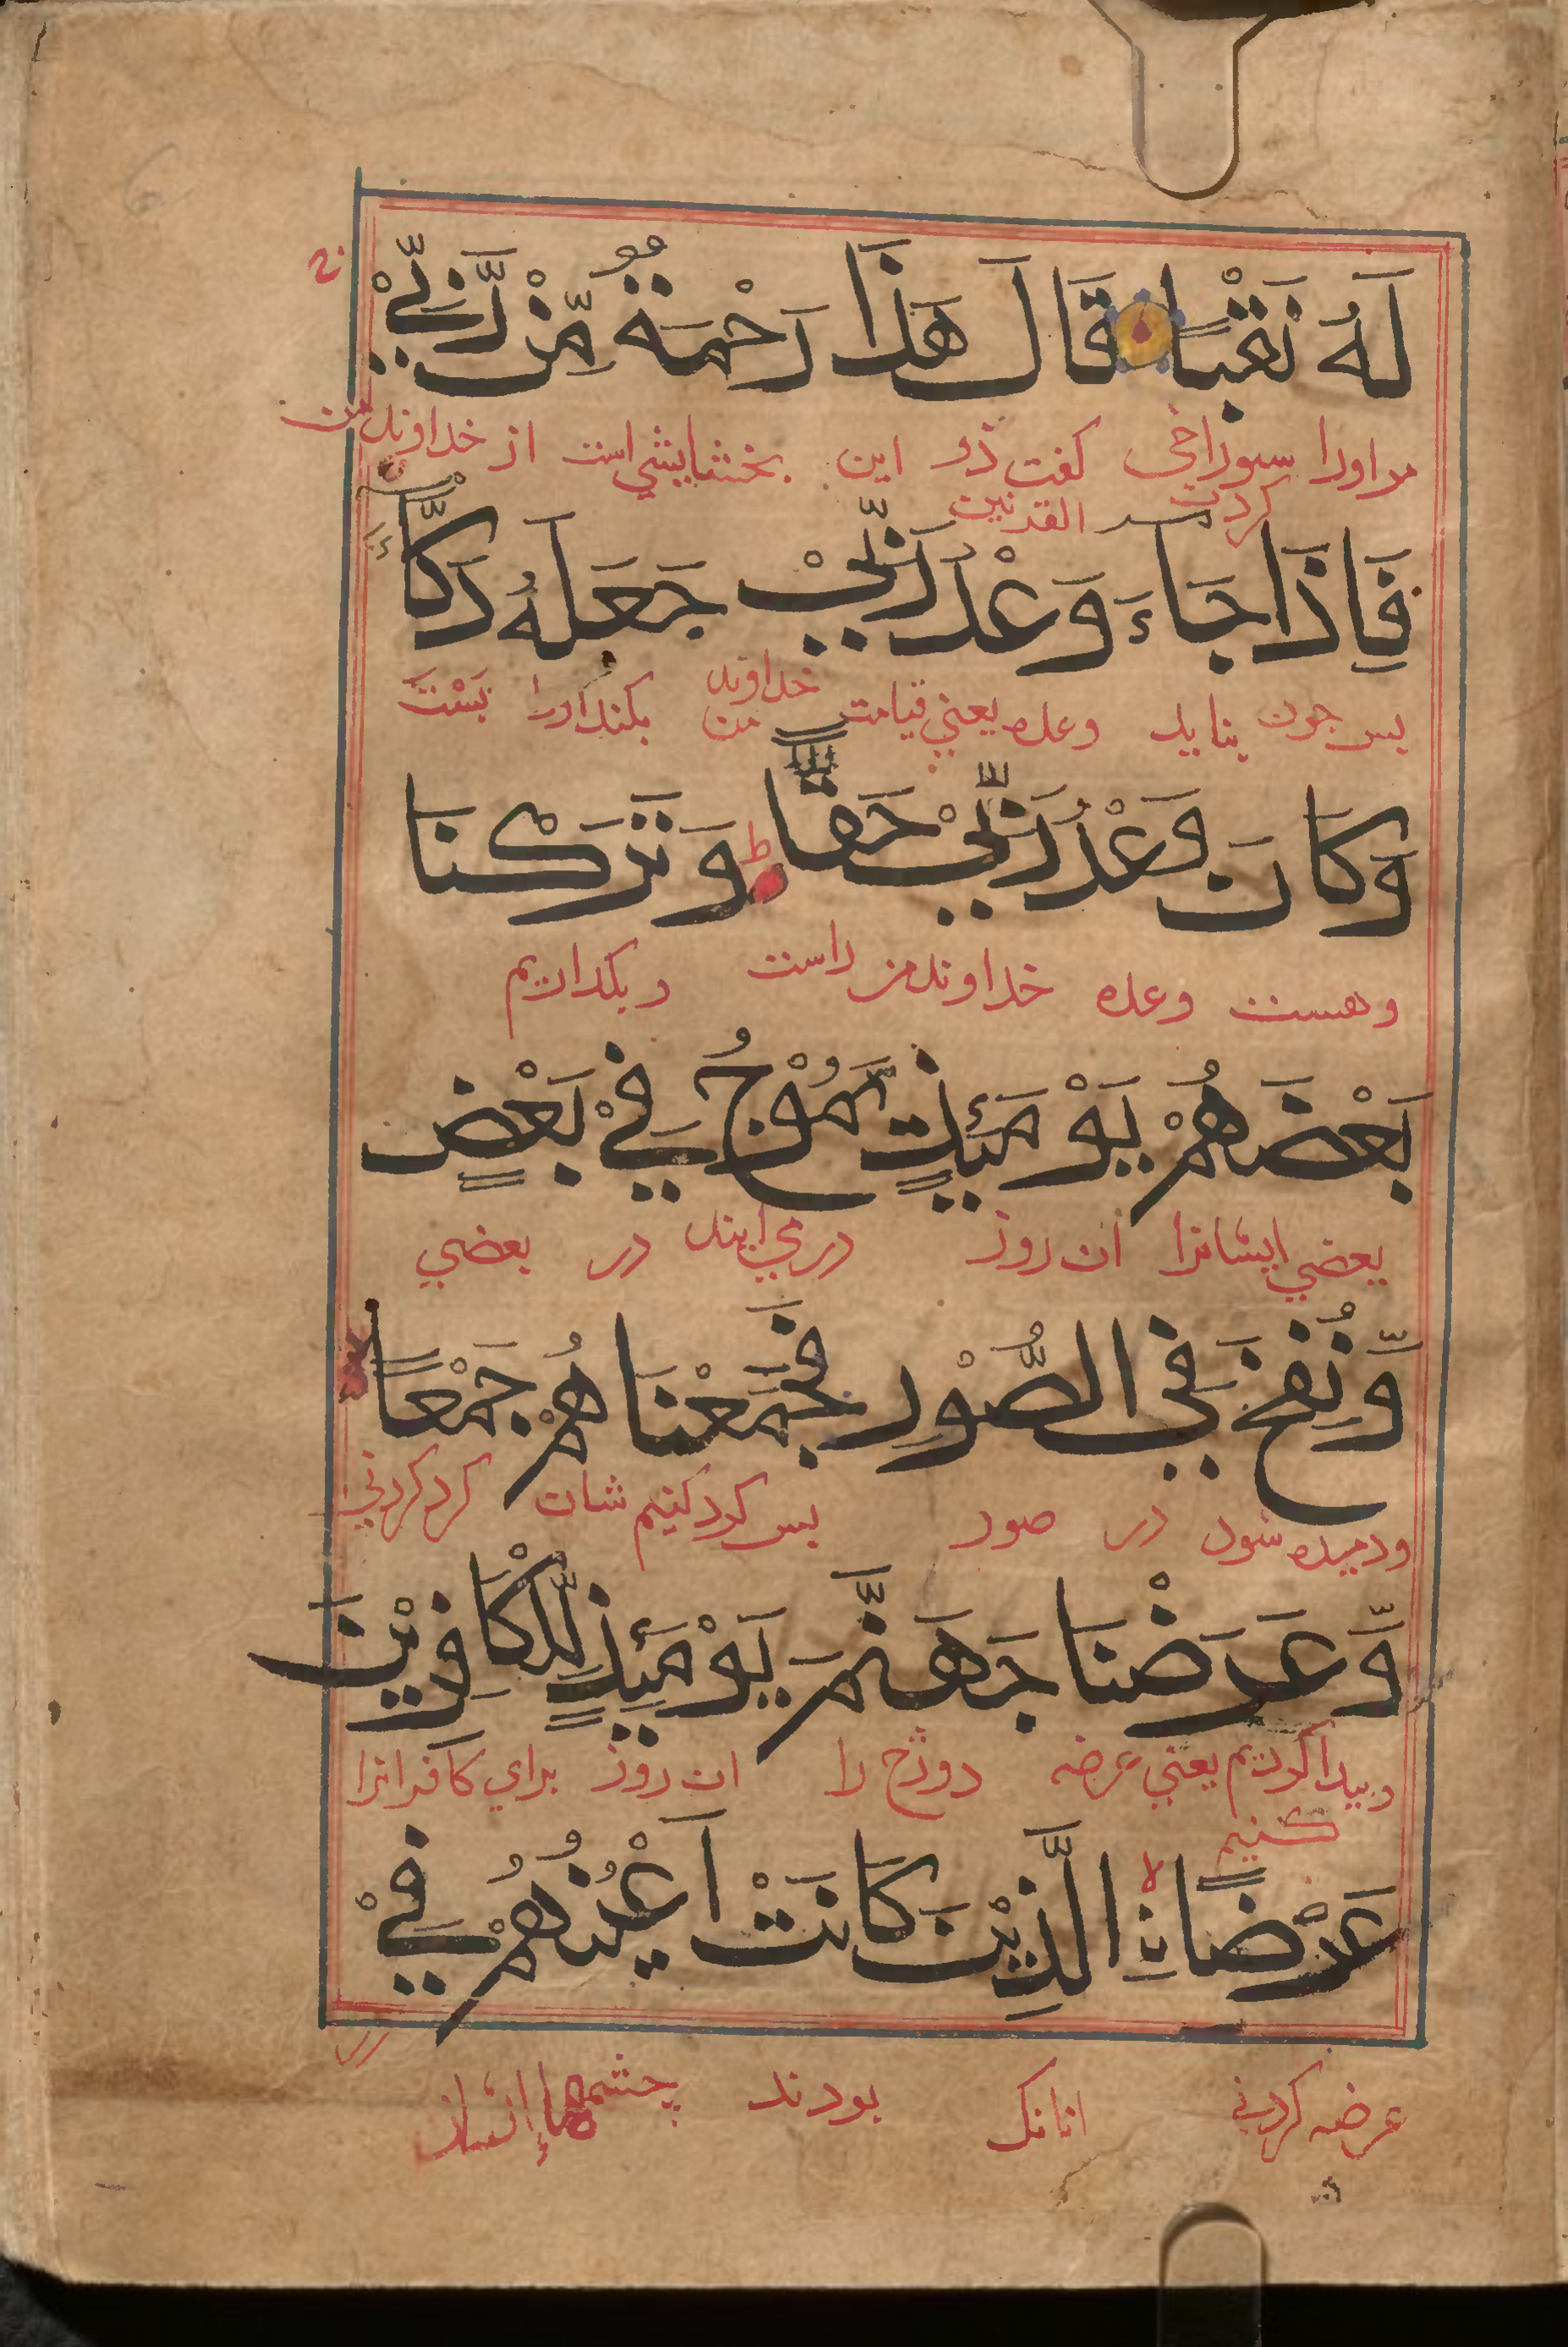 لَهُ نَقْبًا قَالَ هَذَا رَحْمَةٌ مِّنْ رَّبِّيْ
مر اورا سوراخی کفت ذو این بخشایشی است از خداوند من
کردن القرنین
فَاِذَا جَاءَ وَعْدُ رَبِّيْ جَعَلَهُ دَكَّاءَ
بس جون بیاید وعده یعنی قیامت خداوند من بکند اورا بَسْتَ
وَكَانَ وَعْدُ رَبِّيْ حَقًّا ط وَتَرَكْنَا
وهست وعده خداوند من راست وبکذاریم
بَعْضَهُمْ يَوْمَئِذٍ يَّمُوْجُ فِيْ بَعْضٍ
بعضي ایشانرا ان روز در می ایند در بعضي
وَّنُفِخَ فِي الصُّوْرِ فَجَمَعْنَاهُمْ جَمْعًا
ودمیده شود در صور بس کرد کنیم شان کرد کردنی
وَّعَرَضْنَا جَهَنَّمَ يَوْمَئِذٍ لِّلْكَافِرِيْنَ
وبیدا کردیم یعنی عرضه دوزخ را ان روز برای کافرانرا
کنیم
عَرْضًا لا نِ الَّذِيْنَ كَانَتْ اَعْيُنُهُمْ فِيْ
عرضه کردنی انانک بودند چشمهاء ایشان